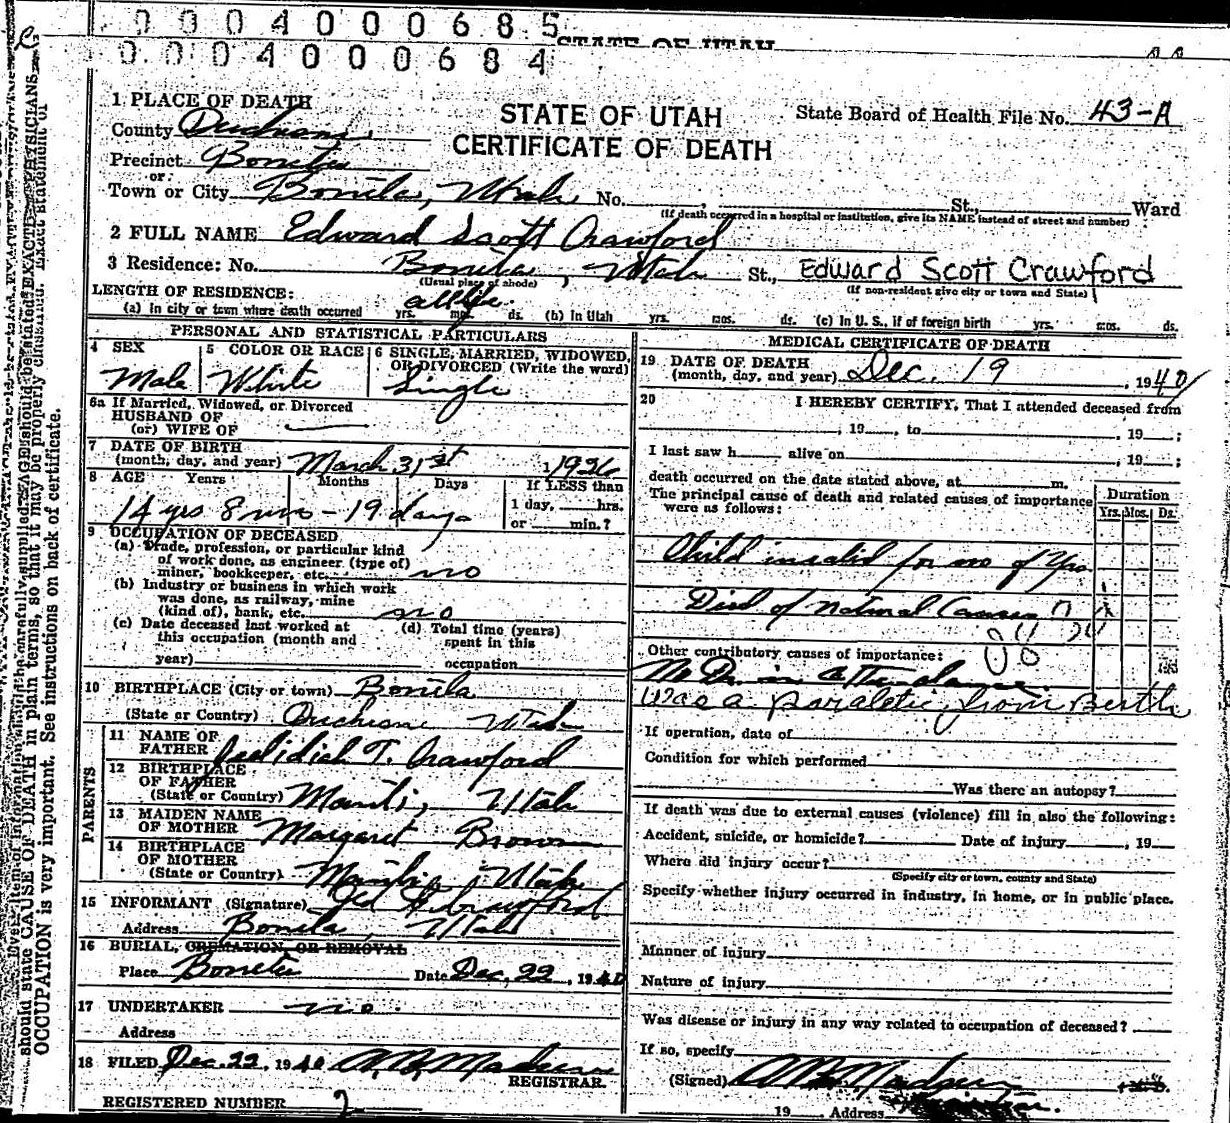 0 0 0 4 0 0 0 6 8 5
STATE OF UTAH
0 0 0 4 0 0 0 6 8 4
1 PLACE OF DEATH
STATE OF UTAH
State Board of Health File No. 43-A
County Duchesne
CERTIFICATE OF DEATH
Precinct Boneta
or
Town or City Boneta, Utah No. , St., Ward
(If death occurred in a hospital or institution, give its NAME instead of street and number)
2 FULL NAME Edward Scott Crawford
3 Residence: No. Boneta, Utah St., Edward Scott Crawford
(Usual place of abode) (If non-resident give city or town and State)
LENGTH OF RESIDENCE: all life.
(a) In city or town where death occurred yrs. mos. ds. (b) In Utah yrs. mos. ds. (c) In U. S., if of foreign birth yrs. mos. ds.
PERSONAL AND STATISTICAL PARTICULARS
4 SEX Male
5 COLOR OR RACE White
6 SINGLE, MARRIED, WIDOWED, OR DIVORCED (Write the word) Single
6a If Married, Widowed, or Divorced
HUSBAND OF
(or) WIFE OF
7 DATE OF BIRTH
(month, day, and year) March 31st 1926
8 AGE Years Months Days If LESS than
14 yrs 8 mo - 19 days 1 day, hrs.
or min.?
9 OCCUPATION OF DECEASED
(a) Trade, profession, or particular kind
of work done, as engineer (type of)
miner, bookkeeper, etc. no
(b) Industry or business in which work
was done, as railway, mine
(kind of), bank, etc. no
(c) Date deceased last worked at
this occupation (month and
year)
(d) Total time (years)
spent in this
occupation
10 BIRTHPLACE (City or town) Boneta
(State or Country) Duchesne Utah
PARENTS
11 NAME OF
FATHER T. Crawford
12 BIRTHPLACE
OF FATHER
(State or Country) Manti, Utah
13 MAIDEN NAME
OF MOTHER Margaret Brown
14 BIRTHPLACE
OF MOTHER
(State or Country) Utah
15 INFORMANT (Signature) Crawford
Address Boneta, Utah
16 BURIAL, CREMATION, OR REMOVAL
Place Boneta Date Dec, 22, 1940
17 UNDERTAKER no.
Address
18 FILED Dec. 22, 1940 A. B. Madsen
REGISTRAR.
REGISTERED NUMBER 2
MEDICAL CERTIFICATE OF DEATH
19 DATE OF DEATH
(month, day, and year) Dec. 19, 1940
20 I HEREBY CERTIFY, That I attended deceased from
, 19 , to , 19 ;
I last saw h alive on , 19 ;
death occurred on the date stated above, at m.
The principal cause of death and related causes of importance
were as follows:
Duration
Yrs. Mos. Ds.
Child invalid for no of yrs
Died of natural Causes
Other contributory causes of importance:
No Dr. in attendance.
Was a paraletic from Berth
If operation, date of
Condition for which performed
Was there an autopsy?
If death was due to external causes (violence) fill in also the following:
Accident, suicide, or homicide? Date of injury , 19
Where did injury occur?
(Specify city or town, county and State)
Specify whether injury occurred in industry, in home, or in public place.
Manner of injury
Nature of injury
Was disease or injury in any way related to occupation of deceased?
If so, specify
(Signed) A B Madsen
19 Address
should state CAUSE OF DEATH in plain terms, so that it may be properly classified. Exact statement of
OCCUPATION is very important. See instructions on back of certificate.